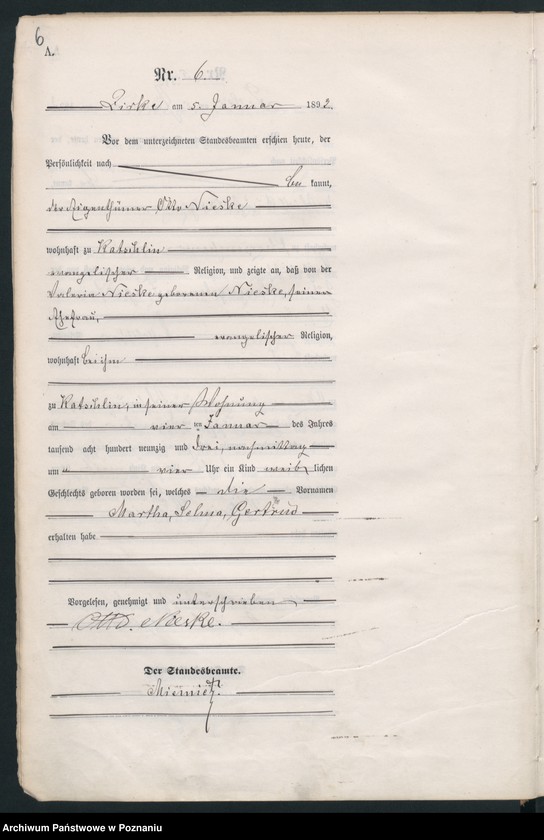 6
A.
Nr. 6.
Zirke am 5. Januar 1893.
Vor dem unterzeichneten Standesbeamten erschien heute, der
Persönlichkeit nach
be kannt,
der Eigenthümer Otto Nieske
wohnhaft zu Katschlin
evangelischer Religion, und zeigte an, daß von der
Valeria Nieske geborenen Nieske, seiner
Ehefrau,
evangelischer Religion,
wohnhaft bei ihm
zu Katschlin, in seiner Wohnung
am vier ten Januar des Jahres
tausend acht hundert neunzig und drei, nachmittag
um vier Uhr ein Kind weib lichen
Geschlechts geboren worden sei, welches die Vornamen
Martha, Selma, Gertrud
erhalten habe
Vorgelesen, genehmigt und unterschrieben
Otto Nieske.
Der Standesbeamte.
Archiwum Państwowe w Poznaniu